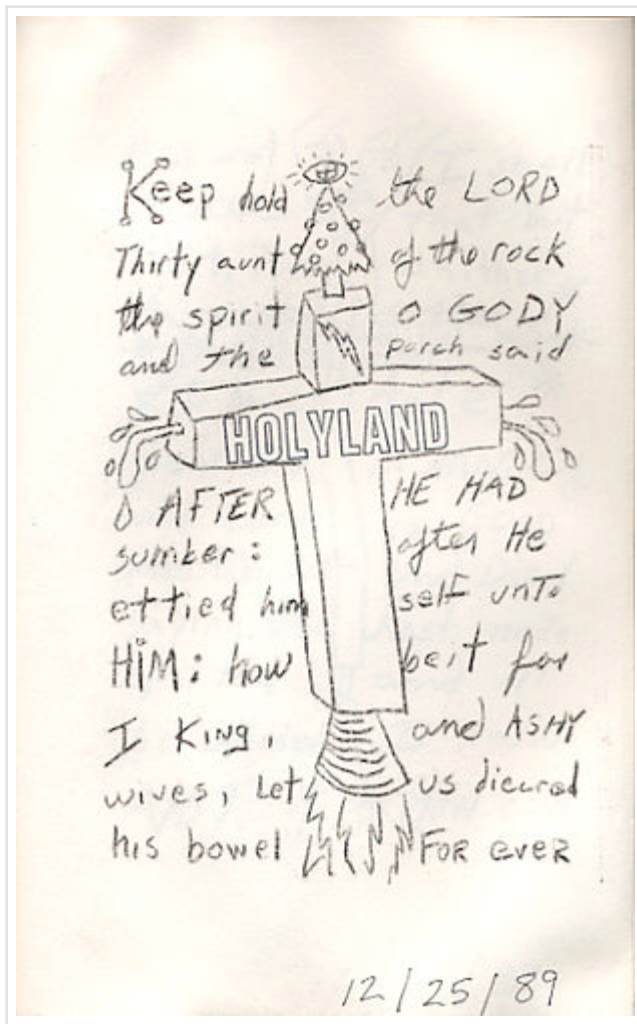 Keep hold the LORD
Thirty aunt of the rock
the spirit O GODY
and the porch said
HOLYLAND
O AFTER HE HAD
sumber: after He
ettied him self unto
HIM: how beit for
I KING, and ASHY
wives, Let us dicured
his bowel FOR ever
12/25/89